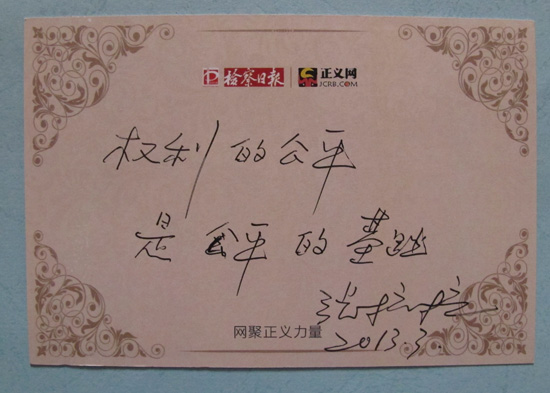 检察日报 正义网
JCRB.COM
权利的公平
是公平的基础
网聚正义力量
2013.3.